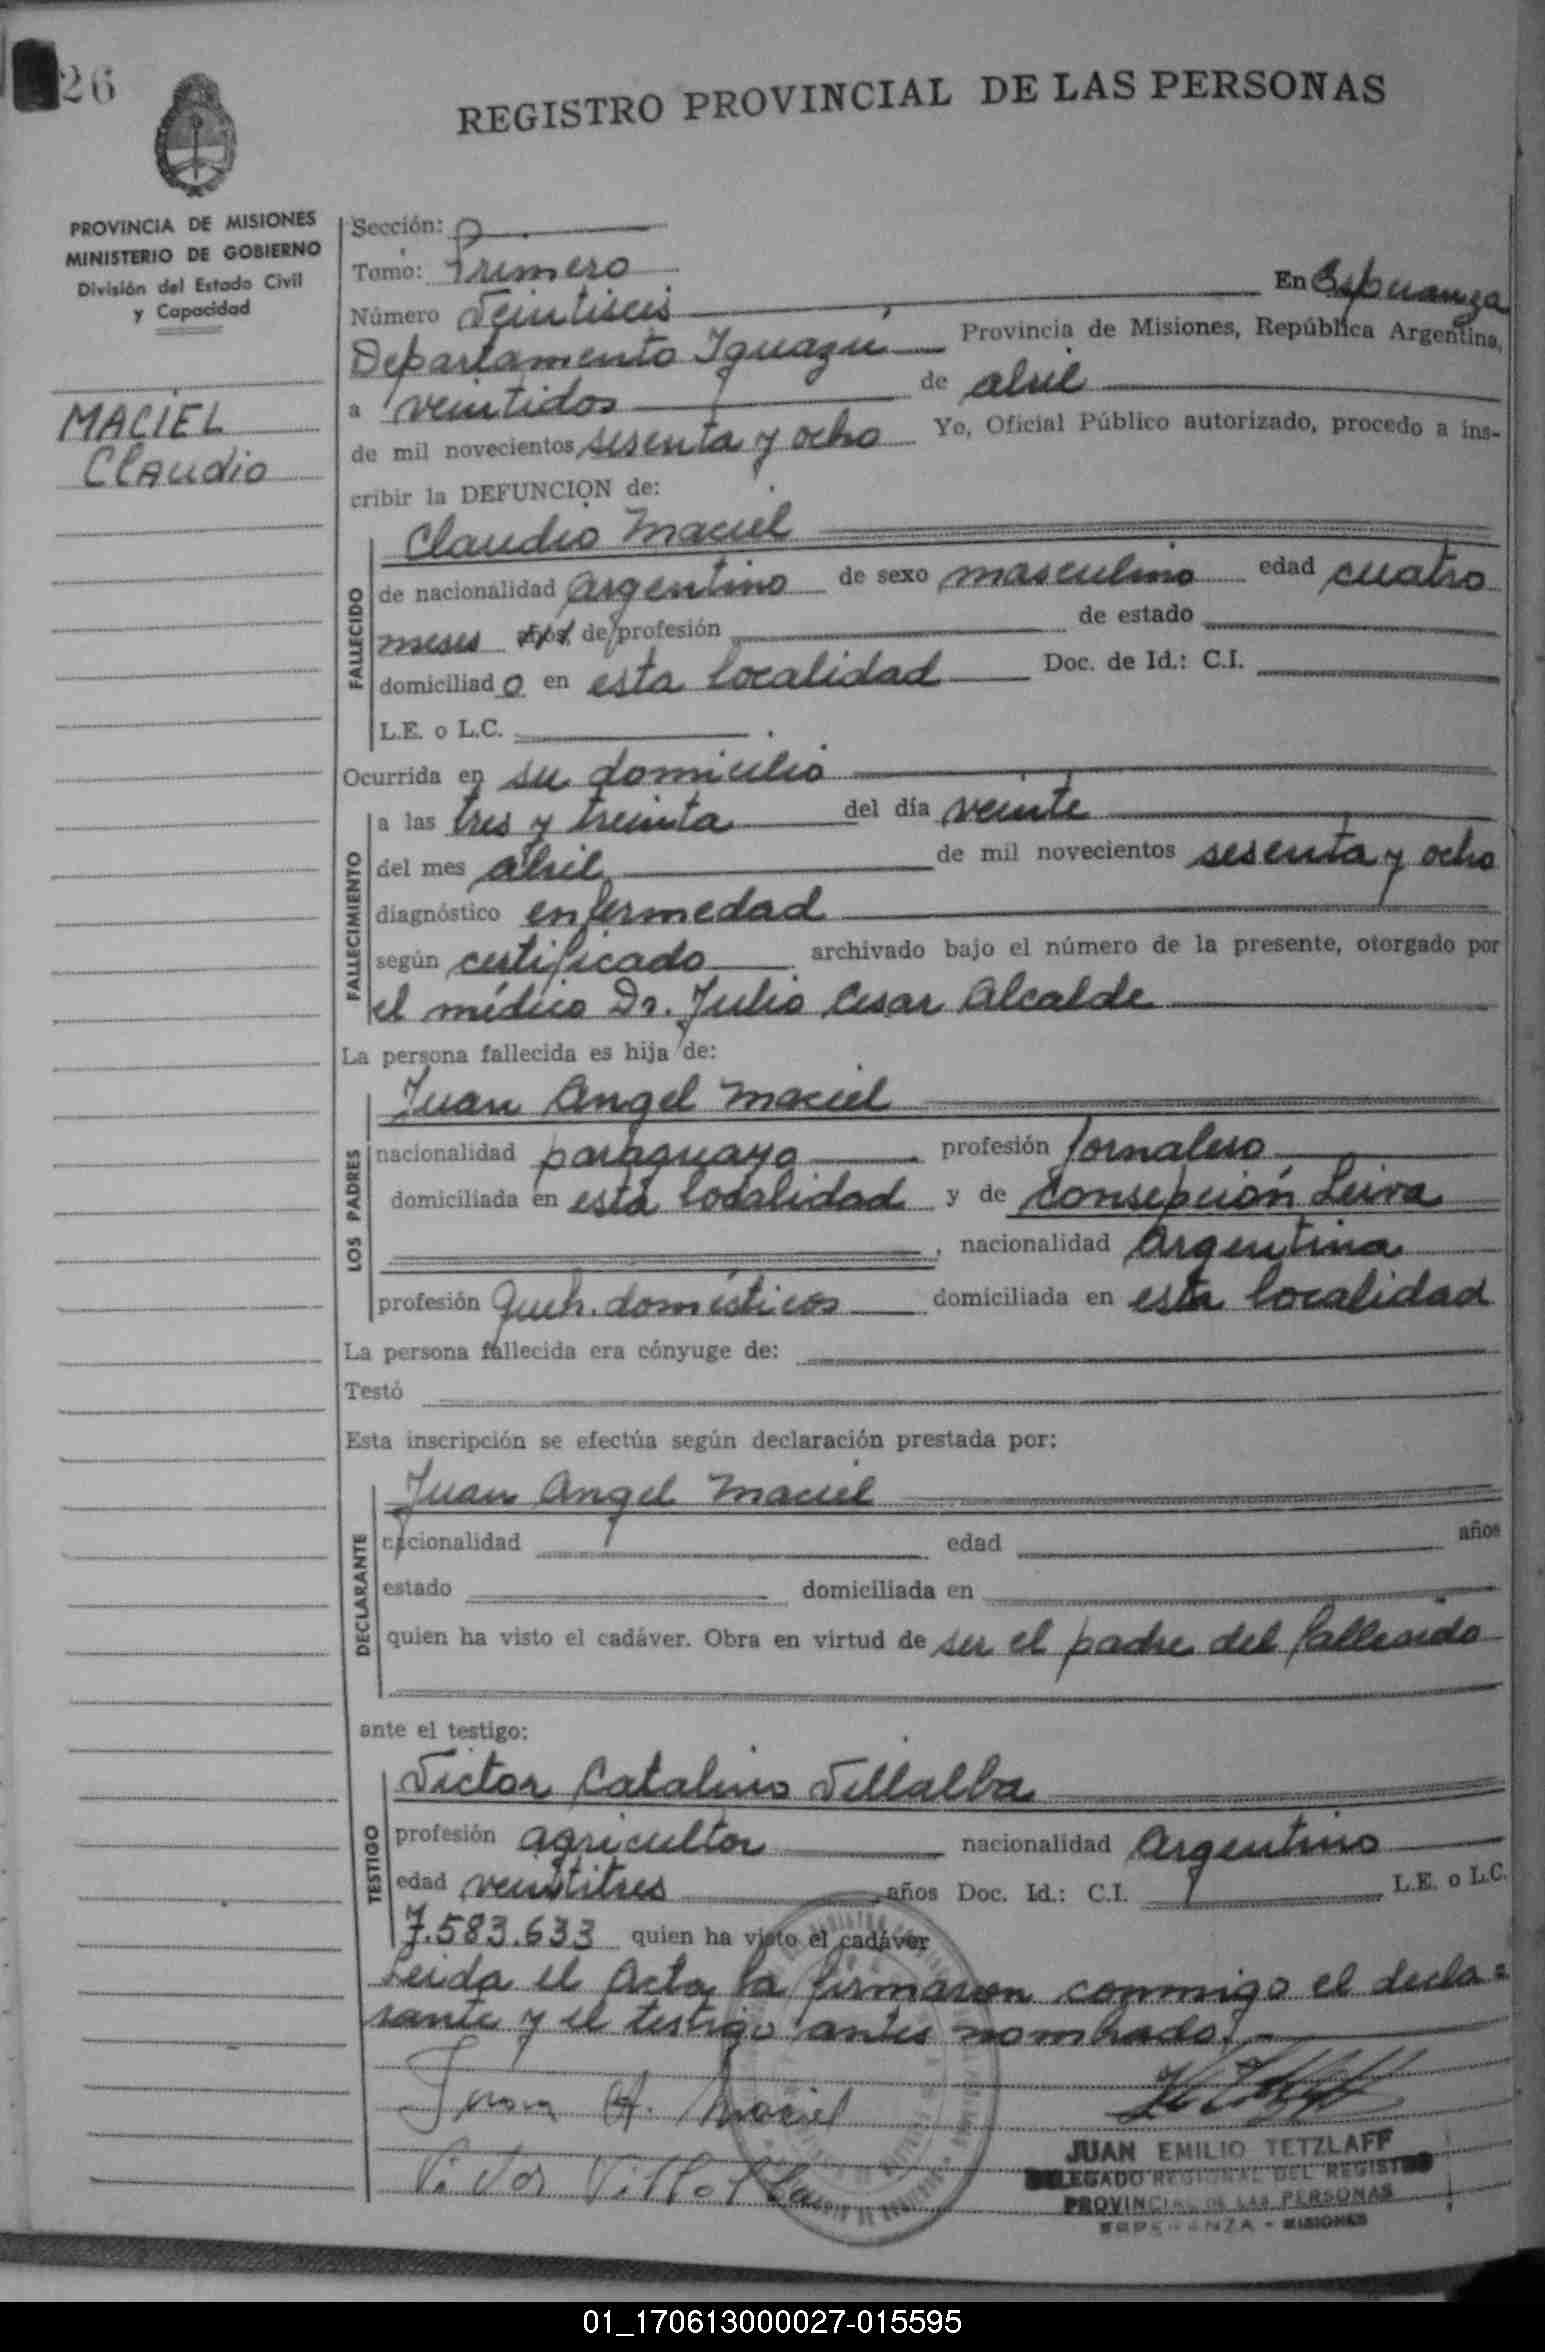 26
REGISTRO PROVINCIAL DE LAS PERSONAS
PROVINCIA DE MISIONES
MINISTERIO DE GOBIERNO
División del Estado Civil
y Capacidad
MACIEL
Claudio
Sección:
Tomo: Primero
Número Veintiseis En Esperanza
Departamento Iguazú Provincia de Misiones, República Argentina,
a veintidos de abril
de mil novecientos sesenta y ocho Yo, Oficial Público autorizado, procedo a ins-
cribir la DEFUNCION de:
Claudio Maciel
FALLECIDO
de nacionalidad argentino de sexo masculino edad cuatro
meses de profesión de estado
domiciliado en esta localidad Doc. de Id.: C.I.
L.E. o L.C.
Ocurrida en su domicilio
FALLECIMIENTO
a las tres y treinta del día veinte
del mes abril de mil novecientos sesenta y ocho
diagnóstico enfermedad
según certificado archivado bajo el número de la presente, otorgado por
el médico Dr. Julio Cesar Alcalde
La persona fallecida es hija de:
Juan Angel Maciel
LOS PADRES
nacionalidad paraguayo profesión Jornalero
domiciliada en esta localidad y de Consepción Leiva
, nacionalidad Argentina
profesión Queh. domésticos domiciliada en esta localidad
La persona fallecida era cónyuge de:
Testó
Esta inscripción se efectúa según declaración prestada por:
Juan Angel Maciel
DECLARANTE
nacionalidad edad años
estado domiciliada en
quien ha visto el cadáver. Obra en virtud de ser el padre del fallesido
ante el testigo:
Victor Catalino Villalba
TESTIGO
profesión agricultor nacionalidad Argentino
edad veintitres años Doc. Id.: C.I. L.E. o L.C.
7.583.633 quien ha visto el cadáver
Leida el Acta la firmaron conmigo el decla=
rante y el testigo antes nombrado.-
Juan A. Maciel
Victor Villalba
JUAN EMILIO TETZLAFF
DELEGADO REGIONAL DEL REGISTRO
PROVINCIAL DE LAS PERSONAS
ESPERANZA - MISIONES
01_170613000027-015595